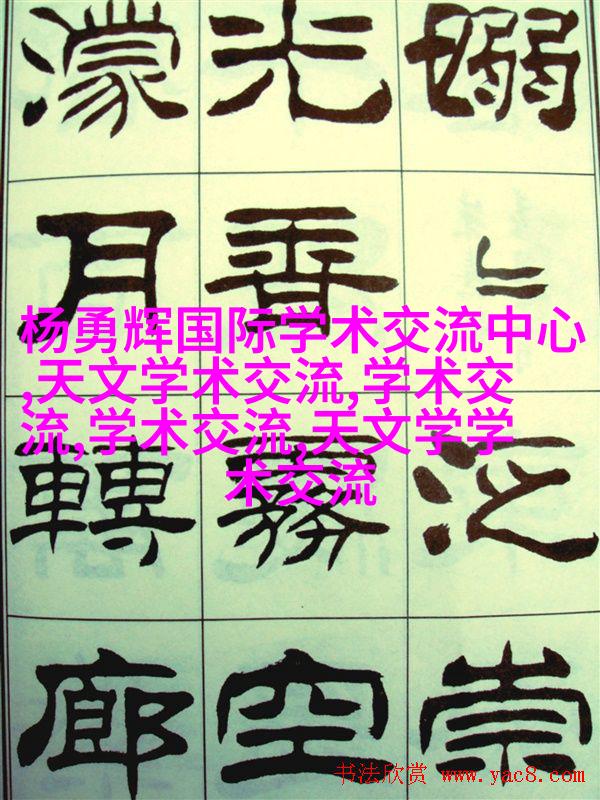 嫋〻泛崇
光香霧空
濛月轉廊
杨勇辉国际学术交流中心
,天文学术交流,学术交
流,学术交流,天文学学
术交流
书法欣赏 www.yac8.com